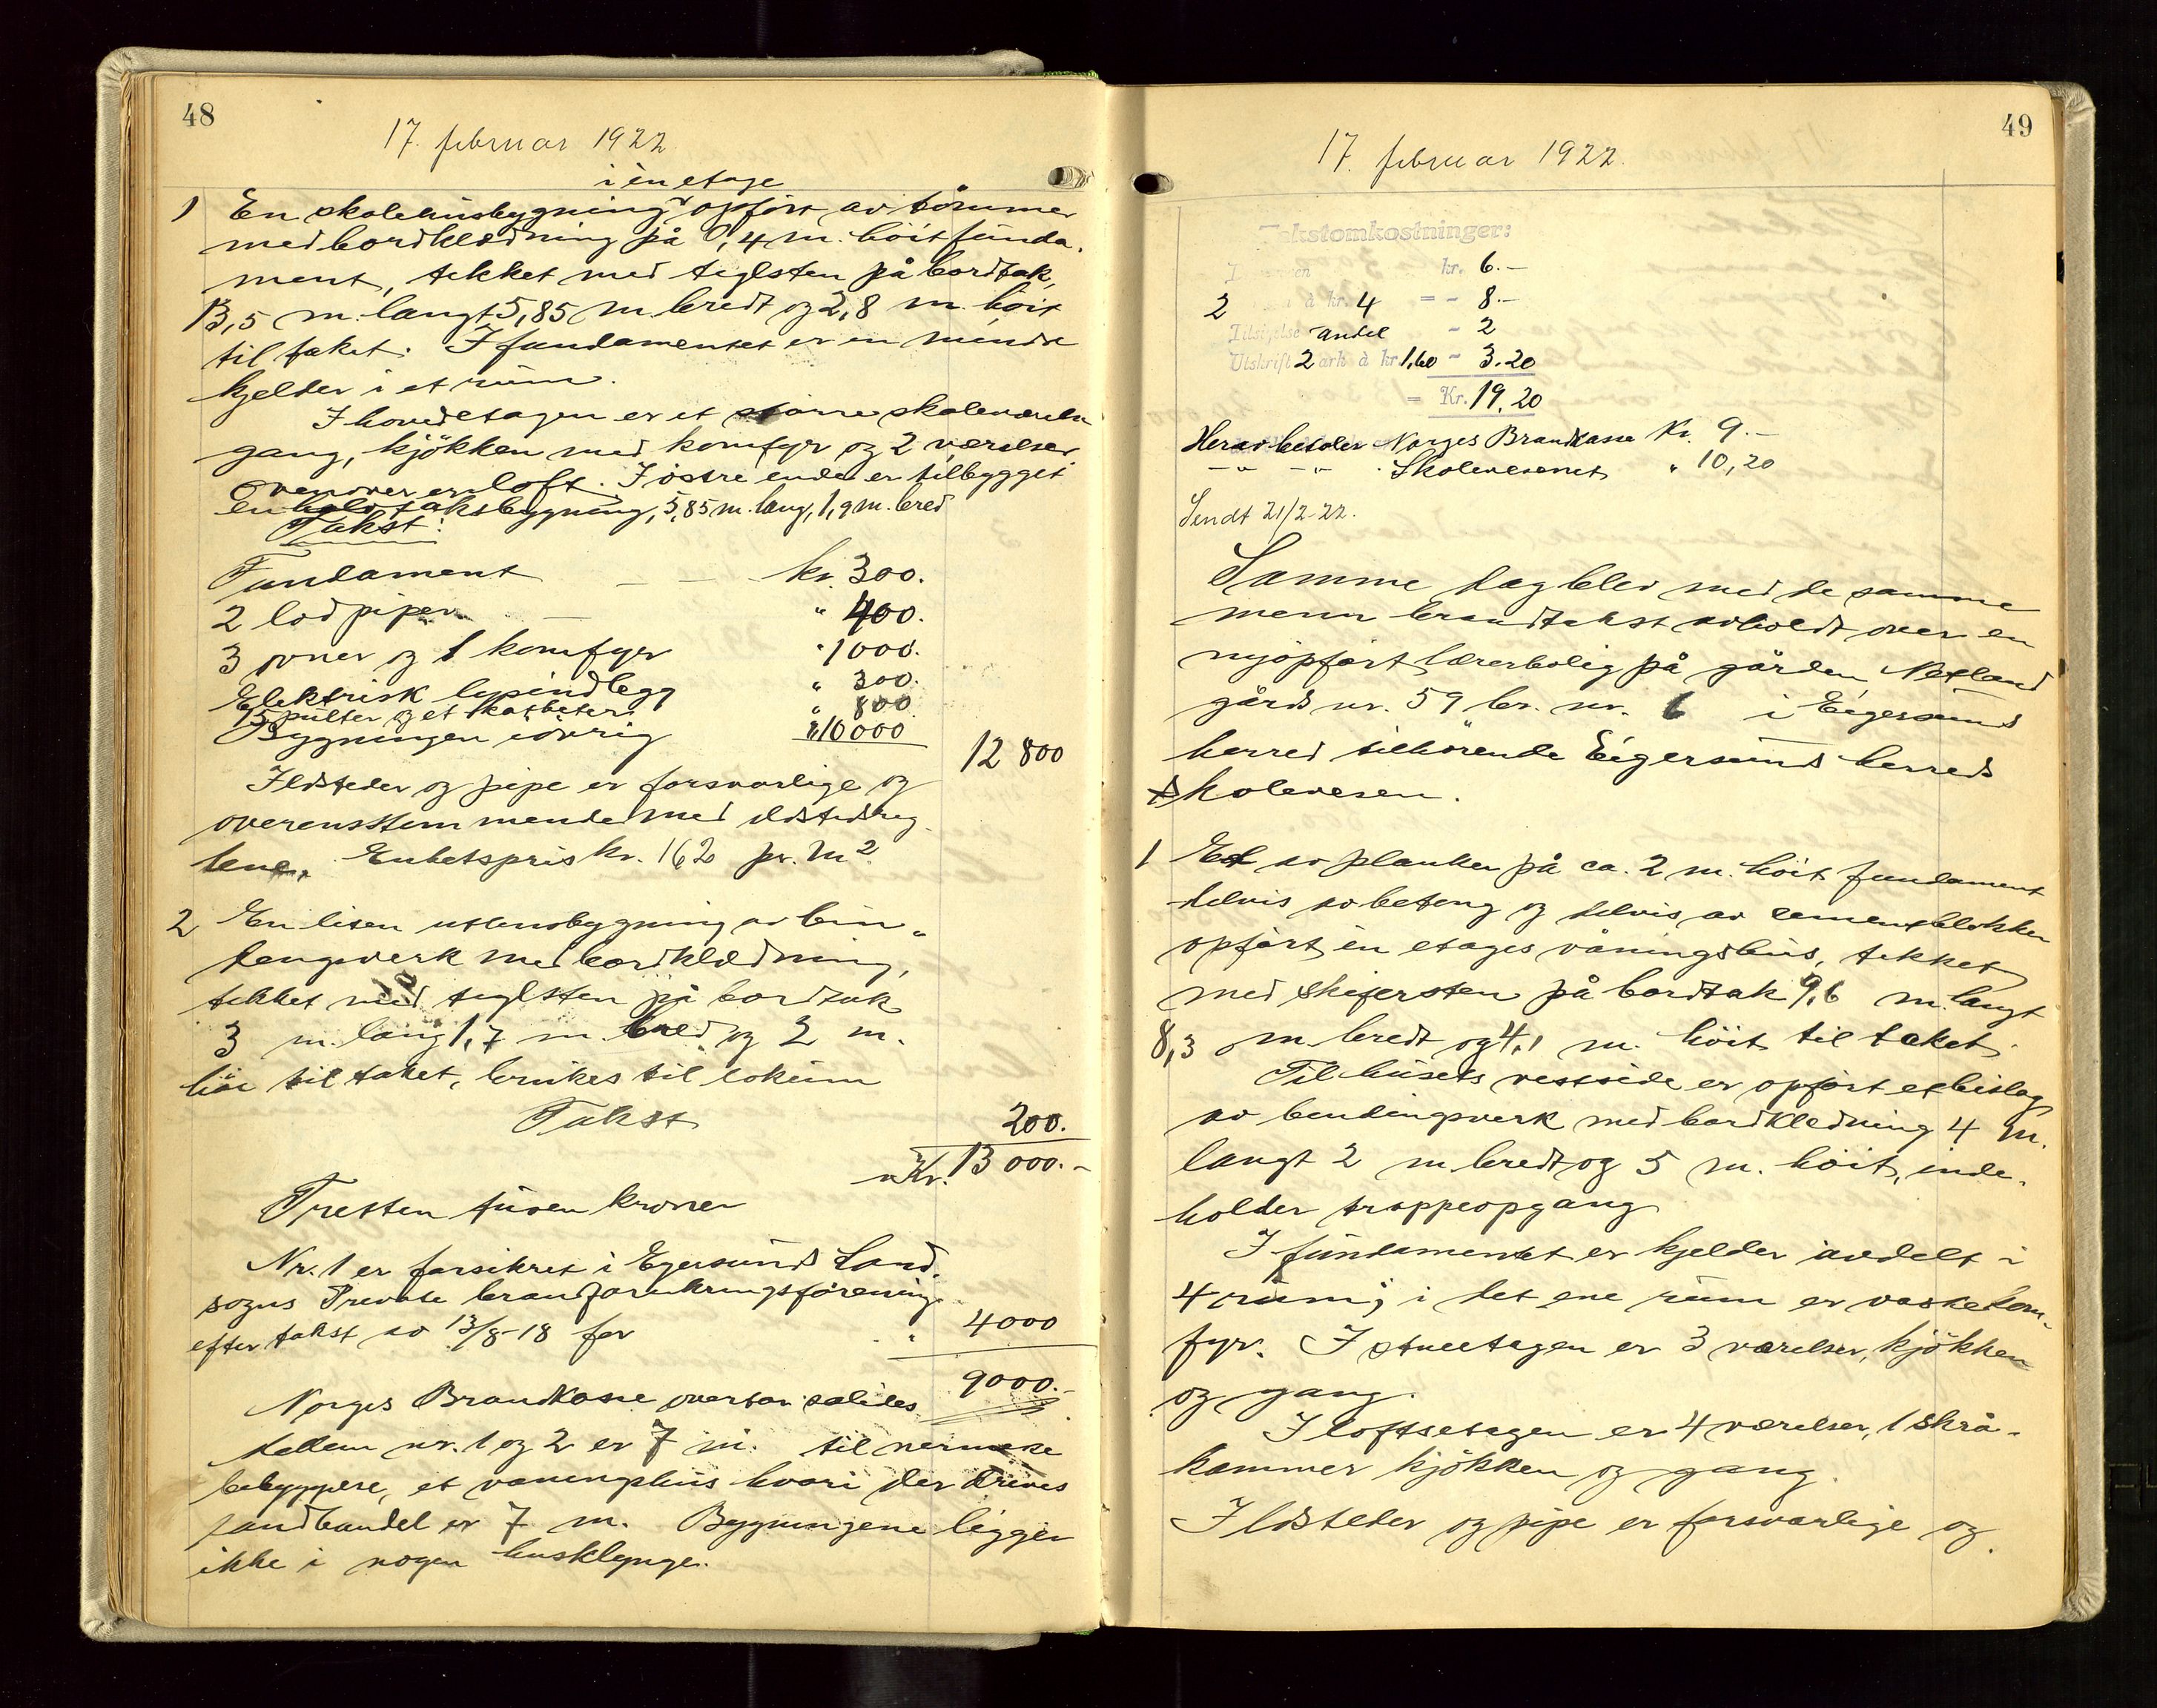 48
17. februar 1922
i én etage
1 En skolehusbygning opført av tømmer
med bordklædning på 0,4 m. höit funda-
ment, tekket med teglsten på bordtak,
13,5 m. langt 5,85 m bredt og 2,8 m. höit
til taket. I fundamentet er en mindre
kjelder i et rum.
I hovedetagen er et større skoleværelse
gang, kjökken med komfyr og 2 værelser
Ovenover er loft. I östre ende er tilbygget
en halvtaksbygning, 5,85 m. lang, 1,9 m. bred
Takst:
Fundament — — - kr. 300.
2 lod piper — " 400.
3 ovner og 1 komfyr " 1000.
Elektrisk lysindlegg " 300.
15 pulter og et kateter. " 800
Bygningen iövrig " 10000
12 800
Ildsteder og pipe er forsvarlige og
overensstemmende med ildstedreg-
lene. Enhetspris kr. 162 pr. m².
2 En liten utenusbygning av bin-
dingverk med bordklædning,
tekket med teglsten på bordtak
3 m. lang 1,7 m. bred og 2 m.
höi til taket, brukes til lokum
Takst 200.
Kr. 13 000.-
Tretten tusen kroner
Nr. 1 er forsikret i Egersunds Land-
sogns Private brandforsikringsförening
efter takst av 13/8-18 for " 4000
Norges Brandkasse overtar således 9000.-
Mellem nr. 1 og 2 er 7 m. til nermeste
bebyggelse, et vaningshus hvori der drives
landhandel er 7 m. Bygningene ligger
ikke i nogen husklynge.
49
17. februar 1922.
Takstomkostninger:
kr. 6.-
2 à kr. 4 = - 8.-
Tilsigelse andel - 2
Utskrift 2 ark à kr 1,60 - 3.20
= Kr. 19,20
Herav betaler Norges Brandkasse Kr. 9.-
-"- -"- Skolevesenet " 10,20
Sendt 21/2-22.
Samme dag blev med de samme
menn brandtakst avholdt over en
nyopført lærerbolig på gården Netland
gårds nr. 59 br. nr. 6 i Eigersunds
herred tilhörende Eigersund herreds
skolevesen.
1 Et av planker på ca. 2 m. höit fundament
delvis av betong og delvis av cementblokker
opført én etages våningshus, tekket
med skifersten på bordtak 9,6 m. langt
8,3 m. bredt og 4,1 m. höit til taket.
Til husets vestside er opført et bislag
av bendingsverk med bordkledning 4 m.
langt 2 m. bredt og 5 m. höit, inde-
holder trappeopgang
I fundamentet er kjelder avdelt i
4 rum; i det ene rum er vaskekom-
fyr. I stueetagen er 3 værelser, kjökken
og gang.
I loftsetagen er 4 værelser, 1 skrå-
kammer kjökken og gang.
Ildsteder og pipe er forsvarlige og